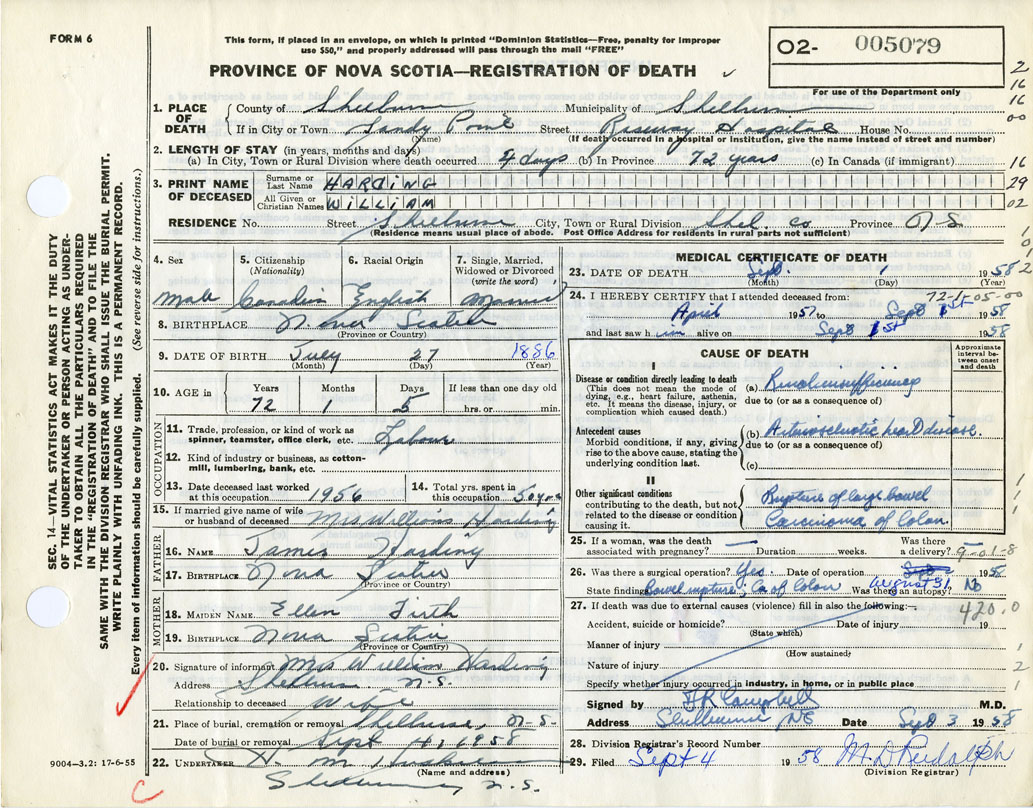 FORM 6
This form, if placed in an envelope, on which is printed "Dominion Statistics—Free, penalty for improper
use $50," and properly addressed will pass through the mail "FREE"
PROVINCE OF NOVA SCOTIA—REGISTRATION OF DEATH
O2- 005079
For use of the Department only
1. PLACE OF DEATH { County of Shelburne Municipality of Shelburne
If in City or Town Sandy Point Street Hospital House No.
(Name) (If death occurred in a hospital or institution, give the name instead of street and number)
2. LENGTH OF STAY (in years, months and days)
(a) In City, Town or Rural Division where death occurred 4 days (b) In Province 72 years (c) In Canada (if immigrant)
3. PRINT NAME OF DECEASED { Surname or Last Name HARDING
All Given or Christian Names WILLIAM
RESIDENCE No. Street Shelburne City, Town or Rural Division Shel. Co Province N S
(Residence means usual place of abode. Post Office Address for residents in rural parts not sufficient)
4. Sex 5. Citizenship (Nationality) 6. Racial Origin 7. Single, Married, Widowed or Divorced (write the word)
Male Canadian English Married
8. BIRTHPLACE Nova Scotia
(Province or Country)
9. DATE OF BIRTH July 27 1886
(Month) (Day) (Year)
10. AGE in { Years Months Days If less than one day old
72 1 5 hrs. or min.
OCCUPATION
11. Trade, profession, or kind of work as spinner, teamster, office clerk, etc. Labour
12. Kind of industry or business, as cotton-mill, lumbering, bank, etc.
13. Date deceased last worked at this occupation 1956 14. Total yrs. spent in this occupation 50 yrs
15. If married give name of wife or husband of deceased Mrs William Harding
FATHER
16. NAME James Harding
17. BIRTHPLACE Nova Scotia
(Province or Country)
MOTHER
18. MAIDEN NAME Ellen Firth
19. BIRTHPLACE Nova Scotia
(Province or Country)
20. Signature of informant Mrs William Harding
Address Shelburne N.S.
Relationship to deceased Wife
21. Place of burial, cremation or removal Shelburne, N.S.
Date of burial or removal Sept 4, 1958
22. UNDERTAKER H. M.
(Name and address)
Shelburne, N.S.
9004—3.2: 17-6-55
MEDICAL CERTIFICATE OF DEATH
23. DATE OF DEATH Sept. 1 1958
(Month) (Day) (Year)
72-1-05-00
24. I HEREBY CERTIFY that I attended deceased from:
April 1957 to Sept 1st 1958
and last saw him alive on Sept 1st 1958
CAUSE OF DEATH
Approximate interval between onset and death
I
Disease or condition directly leading to death (a) Renal insufficiency
(This does not mean the mode of dying, e.g., heart failure, asthenia, etc. It means the disease, injury, or complication which caused death.) due to (or as a consequence of)
Antecedent causes (b) Arteriosclerotic heart disease
Morbid conditions, if any, giving rise to the above cause, stating the underlying condition last. due to (or as a consequence of)
(c)
II
Other significant conditions contributing to the death, but not related to the disease or condition causing it.
Rupture of large bowel
Carcinoma of Colon
25. If a woman, was the death associated with pregnancy? — Duration weeks. Was there a delivery? —
9-01-8
26. Was there a surgical operation? Yes. Date of operation Sept 1958
State findings Bowel rupture; Ca of Colon August 31. Was there an autopsy? No
27. If death was due to external causes (violence) fill in also the following:—
420.0
Accident, suicide or homicide? Date of injury 19
(State which)
Manner of injury
(How sustained)
Nature of injury
Specify whether injury occurred in industry, in home, or in public place
Signed by Campbell M.D.
Address Shelburne, NS Date Sept 3 1958
28. Division Registrar's Record Number
29. Filed Sept 4 1958 M. D Rudolph
(Division Registrar)
SEC. 14—VITAL STATISTICS ACT MAKES IT THE DUTY
OF THE UNDERTAKER OR PERSON ACTING AS UNDER-
TAKER TO OBTAIN ALL THE PARTICULARS REQUIRED
IN THE "REGISTRATION OF DEATH" AND TO FILE THE
SAME WITH THE DIVISION REGISTRAR WHO SHALL ISSUE THE BURIAL PERMIT.
WRITE PLAINLY WITH UNFADING INK. THIS IS A PERMANENT RECORD.
Every item of information should be carefully supplied. (See reverse side for instructions.)
C
2
16
16
00
16
29
02
1
0
1
2
1
1
1
1
2
1